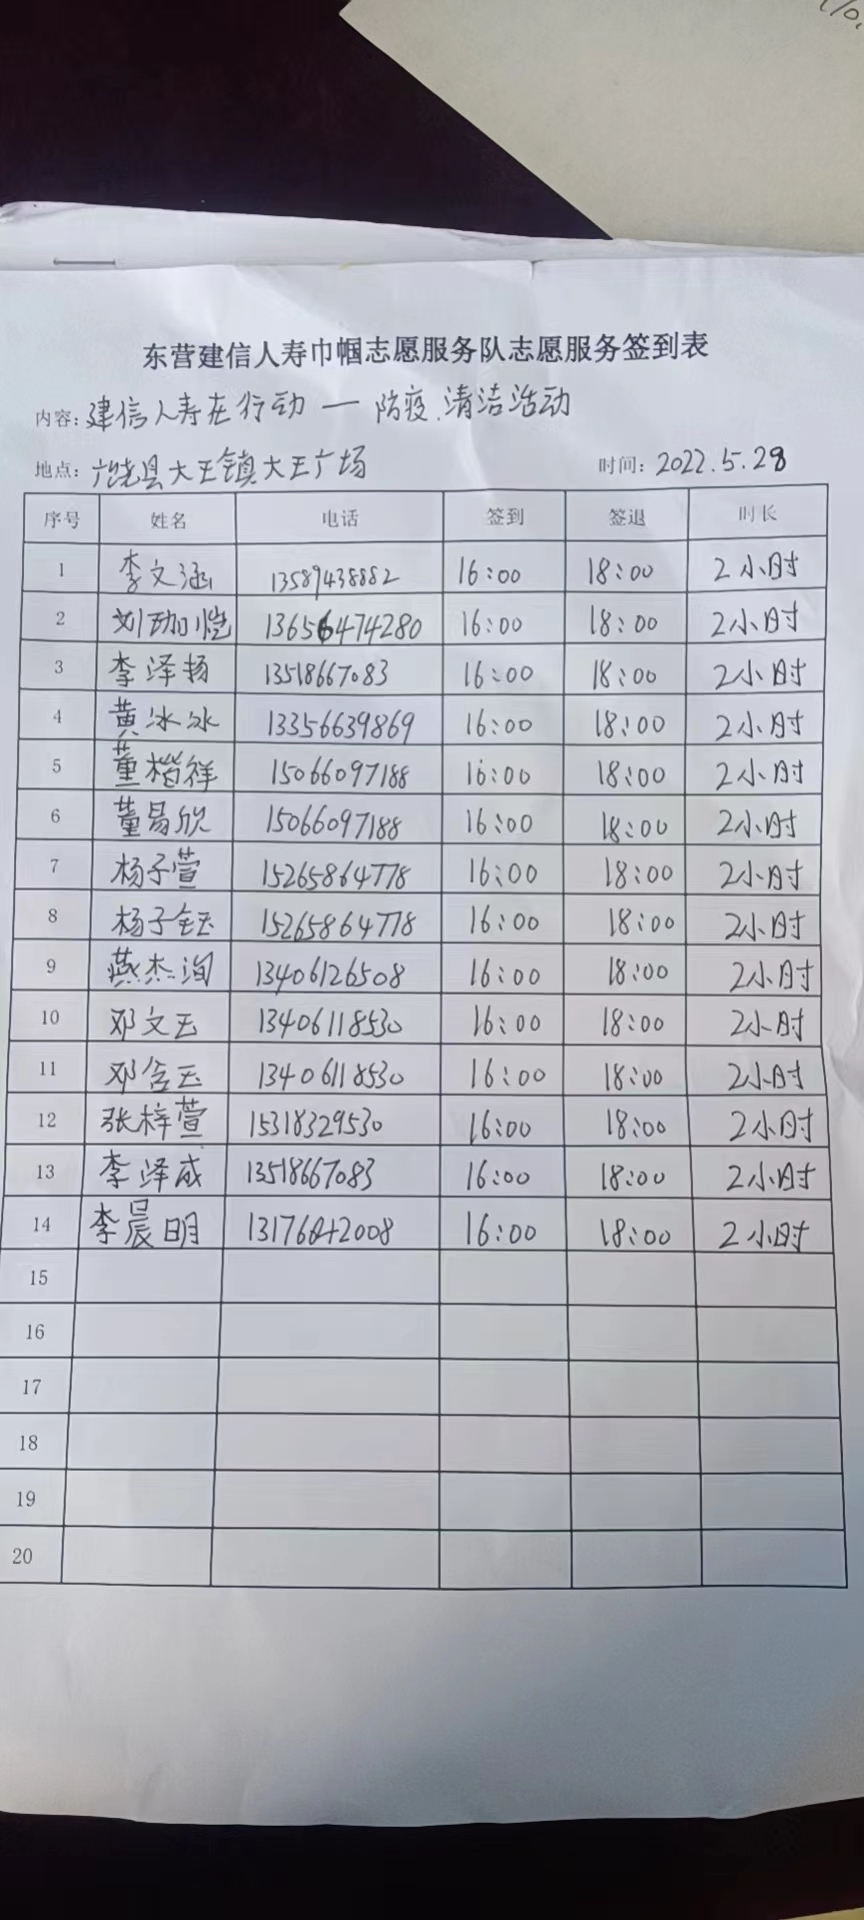 东营建信人寿巾帼志愿服务队志愿服务签到表
内容：建信人寿在行动 — 防疫.清洁活动
地点：广饶县大王镇大王广场 时间：2022.5.28
序号 姓名 电话 签到 签退 时长
1 李文涵 13589438882 16:00 18:00 2小时
2 刘珈恺 13656474280 16:00 18:00 2小时
3 李泽扬 13518667083 16:00 18:00 2小时
4 黄冰冰 13356639869 16:00 18:00 2小时
5 董楷祥 15066097188 16:00 18:00 2小时
6 董易欣 15066097188 16:00 18:00 2小时
7 杨子萱 15265864778 16:00 18:00 2小时
8 杨子钰 15265864778 16:00 18:00 2小时
9 燕杰洵 13406126508 16:00 18:00 2小时
10 邓文玉 13406118530 16:00 18:00 2小时
11 邓含玉 13406118530 16:00 18:00 2小时
12 张梓萱 15318329530 16:00 18:00 2小时
13 李泽成 13518667083 16:00 18:00 2小时
14 李晨明 16:00 18:00 2小时
15
16
17
18
19
20